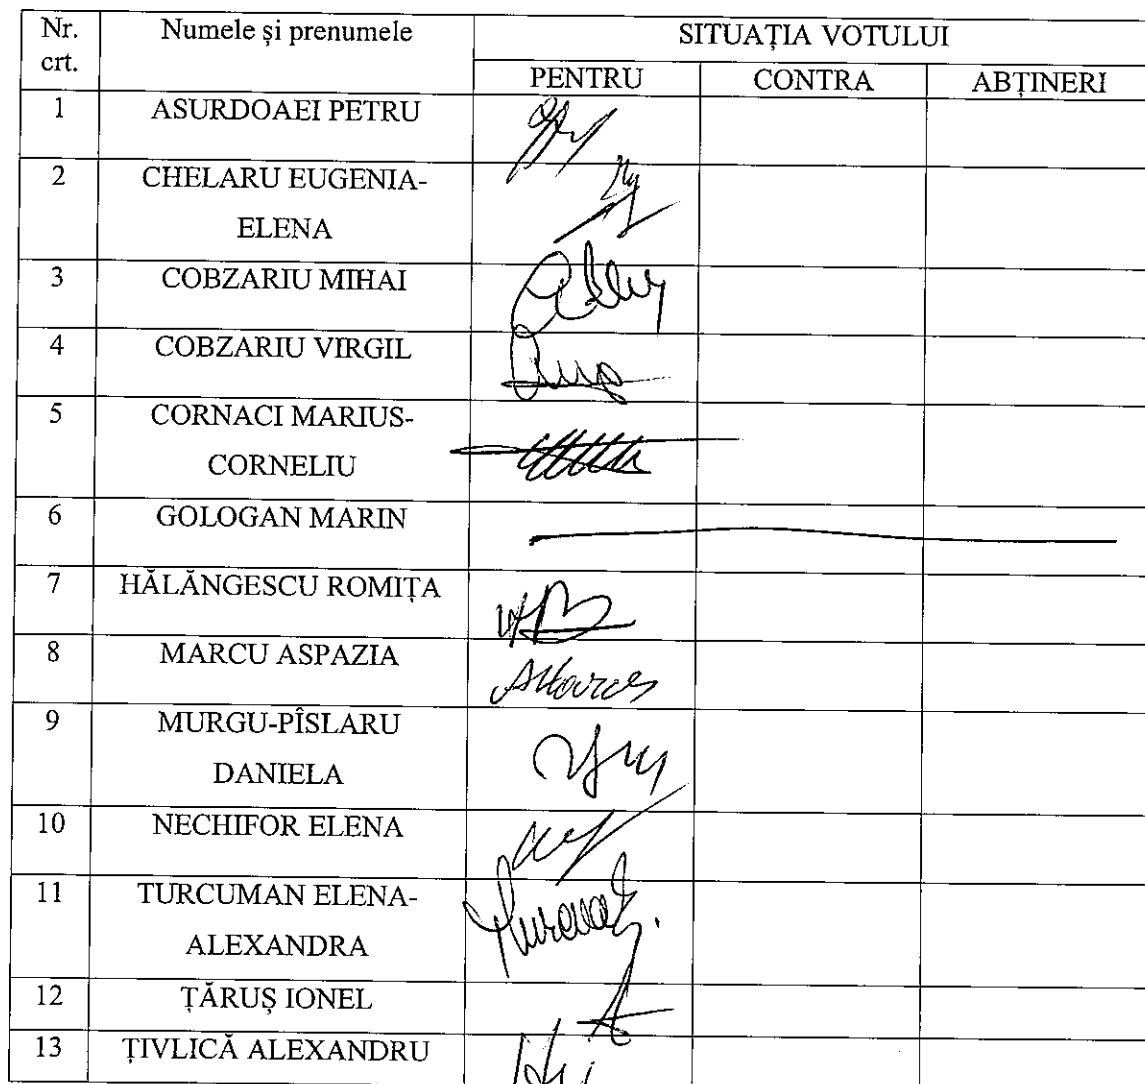 Nr. crt.
Numele și prenumele
SITUAȚIA VOTULUI
PENTRU
CONTRA
ABȚINERI
1 ASURDOAEI PETRU
2 CHELARU EUGENIA-
ELENA
3 COBZARIU MIHAI
4 COBZARIU VIRGIL
5 CORNACI MARIUS-
CORNELIU
6 GOLOGAN MARIN
7 HĂLĂNGESCU ROMIȚA
8 MARCU ASPAZIA
9 MURGU-PÎSLARU
DANIELA
10 NECHIFOR ELENA
11 TURCUMAN ELENA-
ALEXANDRA
12 ȚĂRUȘ IONEL
13 ȚIVLICĂ ALEXANDRU